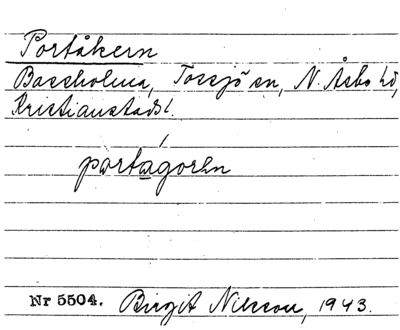 Portåkern
Bassholma, Tossjö sn, N. Åsbo hd,
Kristianstads l.
pɑrtagorhn
Nr 5504. Birgit Nilsson, 1943.